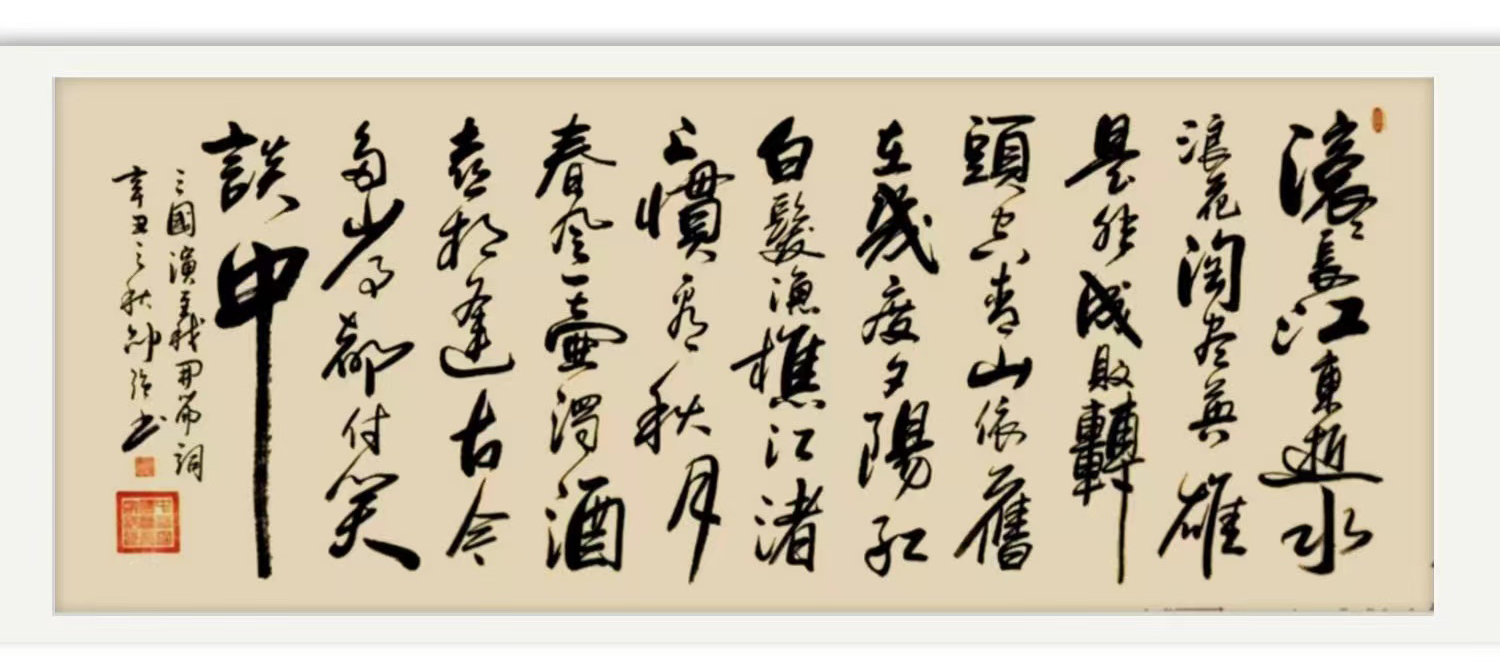 滚々長江東逝水
浪花淘尽英雄
是非成敗轉
頭空青山依舊
在幾度夕陽紅
白髮漁樵江渚
上慣看秋月
春風一壺濁酒
喜相逢古今
多少事都付笑
談中
三國演義開篇詞
辛丑之秋书